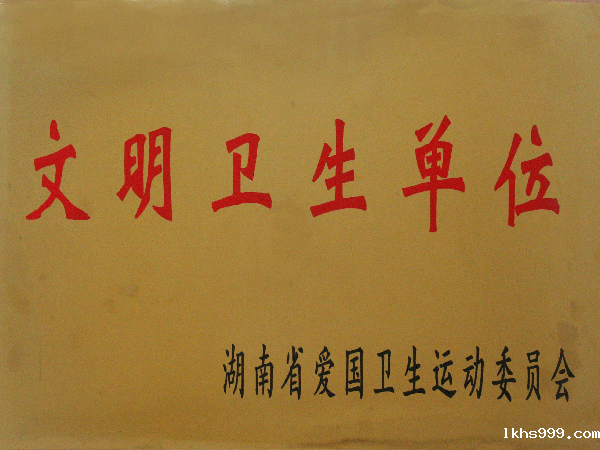 文明卫生单位
湖南省爱国卫生运动委员会
lkhs999.com